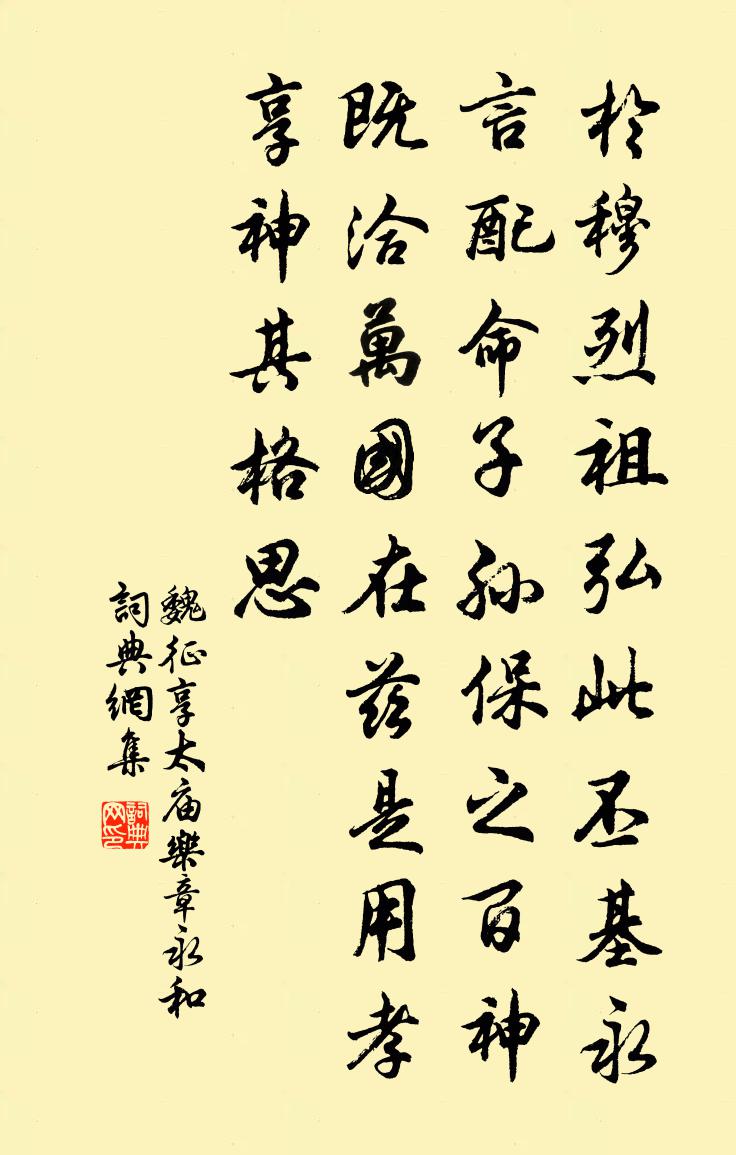 於穆烈祖弘此丕基永
言配命子孫保之百神
既洽萬國在茲是用孝
享神其格思
魏征享太庙樂章永和
詞典網集
詞典网印